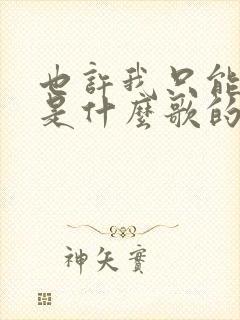 也許我只能
是什麼歌的
神矢實